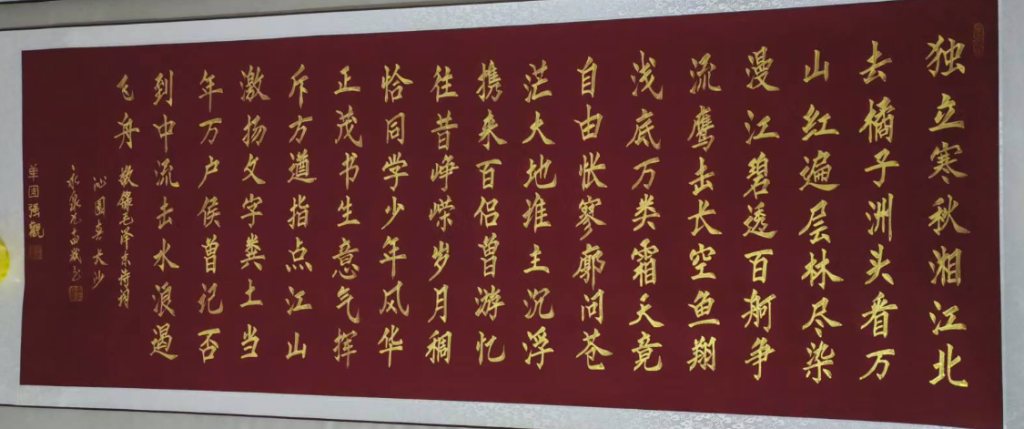 独立寒秋湘江北
去橘子洲头看万
山红遍层林尽染
漫江碧透百舸争
流鹰击长空鱼翔
浅底万类霜天竟
自由怅寥廓问苍
茫大地谁主沉浮
携来百侣曾游忆
往昔峥嵘岁月稠
恰同学少年风华
正茂书生意气挥
斥方遒指点江山
激扬文字粪土当
年万户侯曾记否
到中流击水浪遏
飞舟 敬录毛泽东诗词
沁园春长沙
单国强观